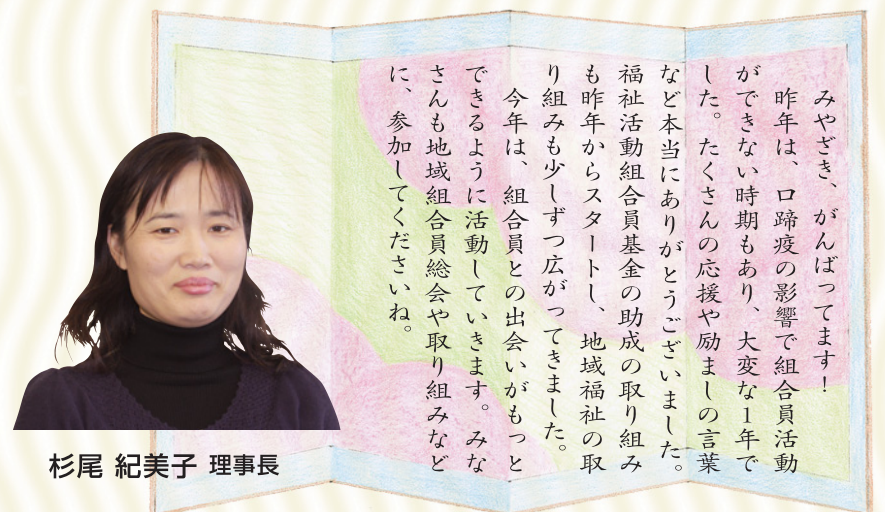 みやざき、がんばってます！
昨年は、口蹄疫の影響で組合員活動
ができない時期もあり、大変な1年で
した。たくさんの応援や励ましの言葉
など本当にありがとうございました。
福祉活動組合員基金の助成の取り組み
も昨年からスタートし、地域福祉の取
り組みも少しずつ広がってきました。
今年は、組合員との出会いがもっと
できるように活動していきます。みな
さんも地域組合員総会や取り組みなど
に、参加してくださいね。
杉尾 紀美子 理事長